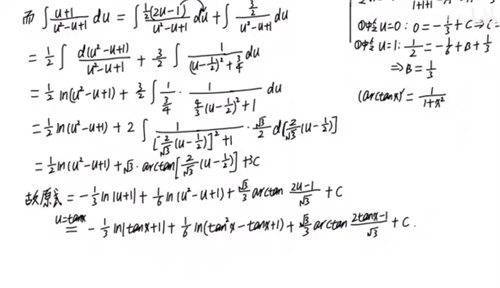 而 ∫ (u+1)/(u²-u+1) du = ∫ ½(2u-1)/(u²-u+1) du + ∫ (3/2)/(u²-u+1) du
= ½ ∫ d(u²-u+1)/(u²-u+1) + 3/2 ∫ 1/((u-½)²+¾) du
= ½ ln(u²-u+1) + 3/2 ∫ 1/(3/4) · 1/(4/3(u-½)²+1) du
= ½ ln(u²-u+1) + 2 ∫ 1/([2/√3(u-½)]²+1) · √3/2 d[2/√3(u-½)]
= ½ ln(u²-u+1) + √3 · arctan[2/√3(u-½)] + 3C
故原式 = -⅓ ln|u+1| + 1/6 ln(u²-u+1) + √3/3 arctan (2u-1)/√3 + C
u=tanx
= -⅓ ln|tanx+1| + 1/6 ln(tan²x-tanx+1) + √3/3 arctan (2tanx-1)/√3 + C.
1+1-1
①中令 u=0: 0 = -⅓ + C ⇒ C=
①中令 u=1: ½ = -1/6 + B + ⅓
⇒ B = ⅓
(arctanx)' = 1/(1+x²)